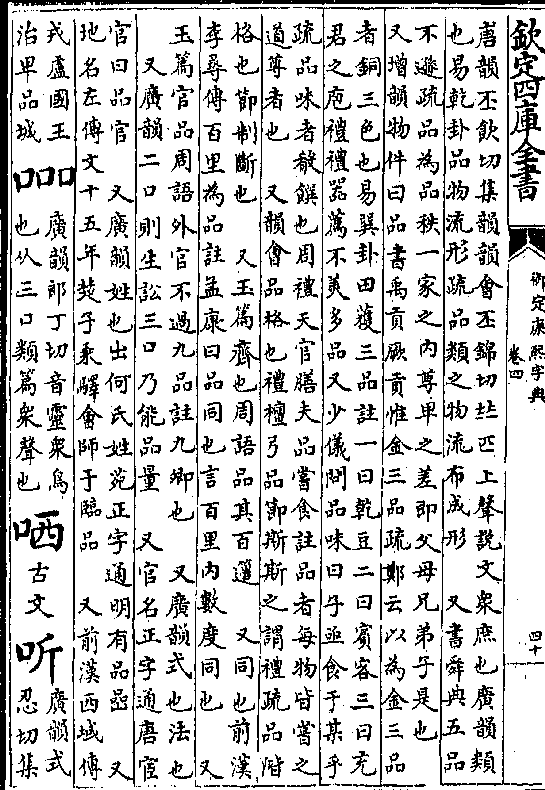 欽定四庫全書
御定康熙字典
卷四
四十
唐韻丕飲切集韻韻會丕錦切𠀤匹上聲說文衆庶也廣韻類
也易乾卦品物流形疏品類之物流布成形 又書舜典五品
不遜疏品為品秩一家之內尊卑之差即父母兄弟子是也
又增韻物件曰品書禹貢厥貢惟金三品疏鄭云以為金三品
者銅三色也易巽卦田獲三品註一曰乾豆二曰賓客三曰充
君之庖禮禮器薦不美多品又少儀問品味曰子亟食于某乎
疏品味者殽饌也周禮天官膳夫品嘗食註品者每物皆嘗之
道尊者也 又韻會品格也禮檀弓品節斯斯之謂禮疏品階
格也節制斷也 又玉篇齊也周語品其百籩 又同也前漢
李尋傳百里為品註孟康曰品同也言百里內數度同也 又
玉篇官品周語外官不過九品註九卿也 又廣韻式也法也
又廣韻二口則生訟三口乃能品量 又官名正字通唐宦
官曰品官 又廣韻姓也出何氏姓苑正字通明有品嵒 又
地名左傳文十五年楚子乘驛會師于臨品 又前漢西域傳
戎盧國王
治卑品城
𠱠
廣韻郎丁切音靈衆鳥
也从三口類篇衆聲也
哂
古文
听
廣韻式
忍切集